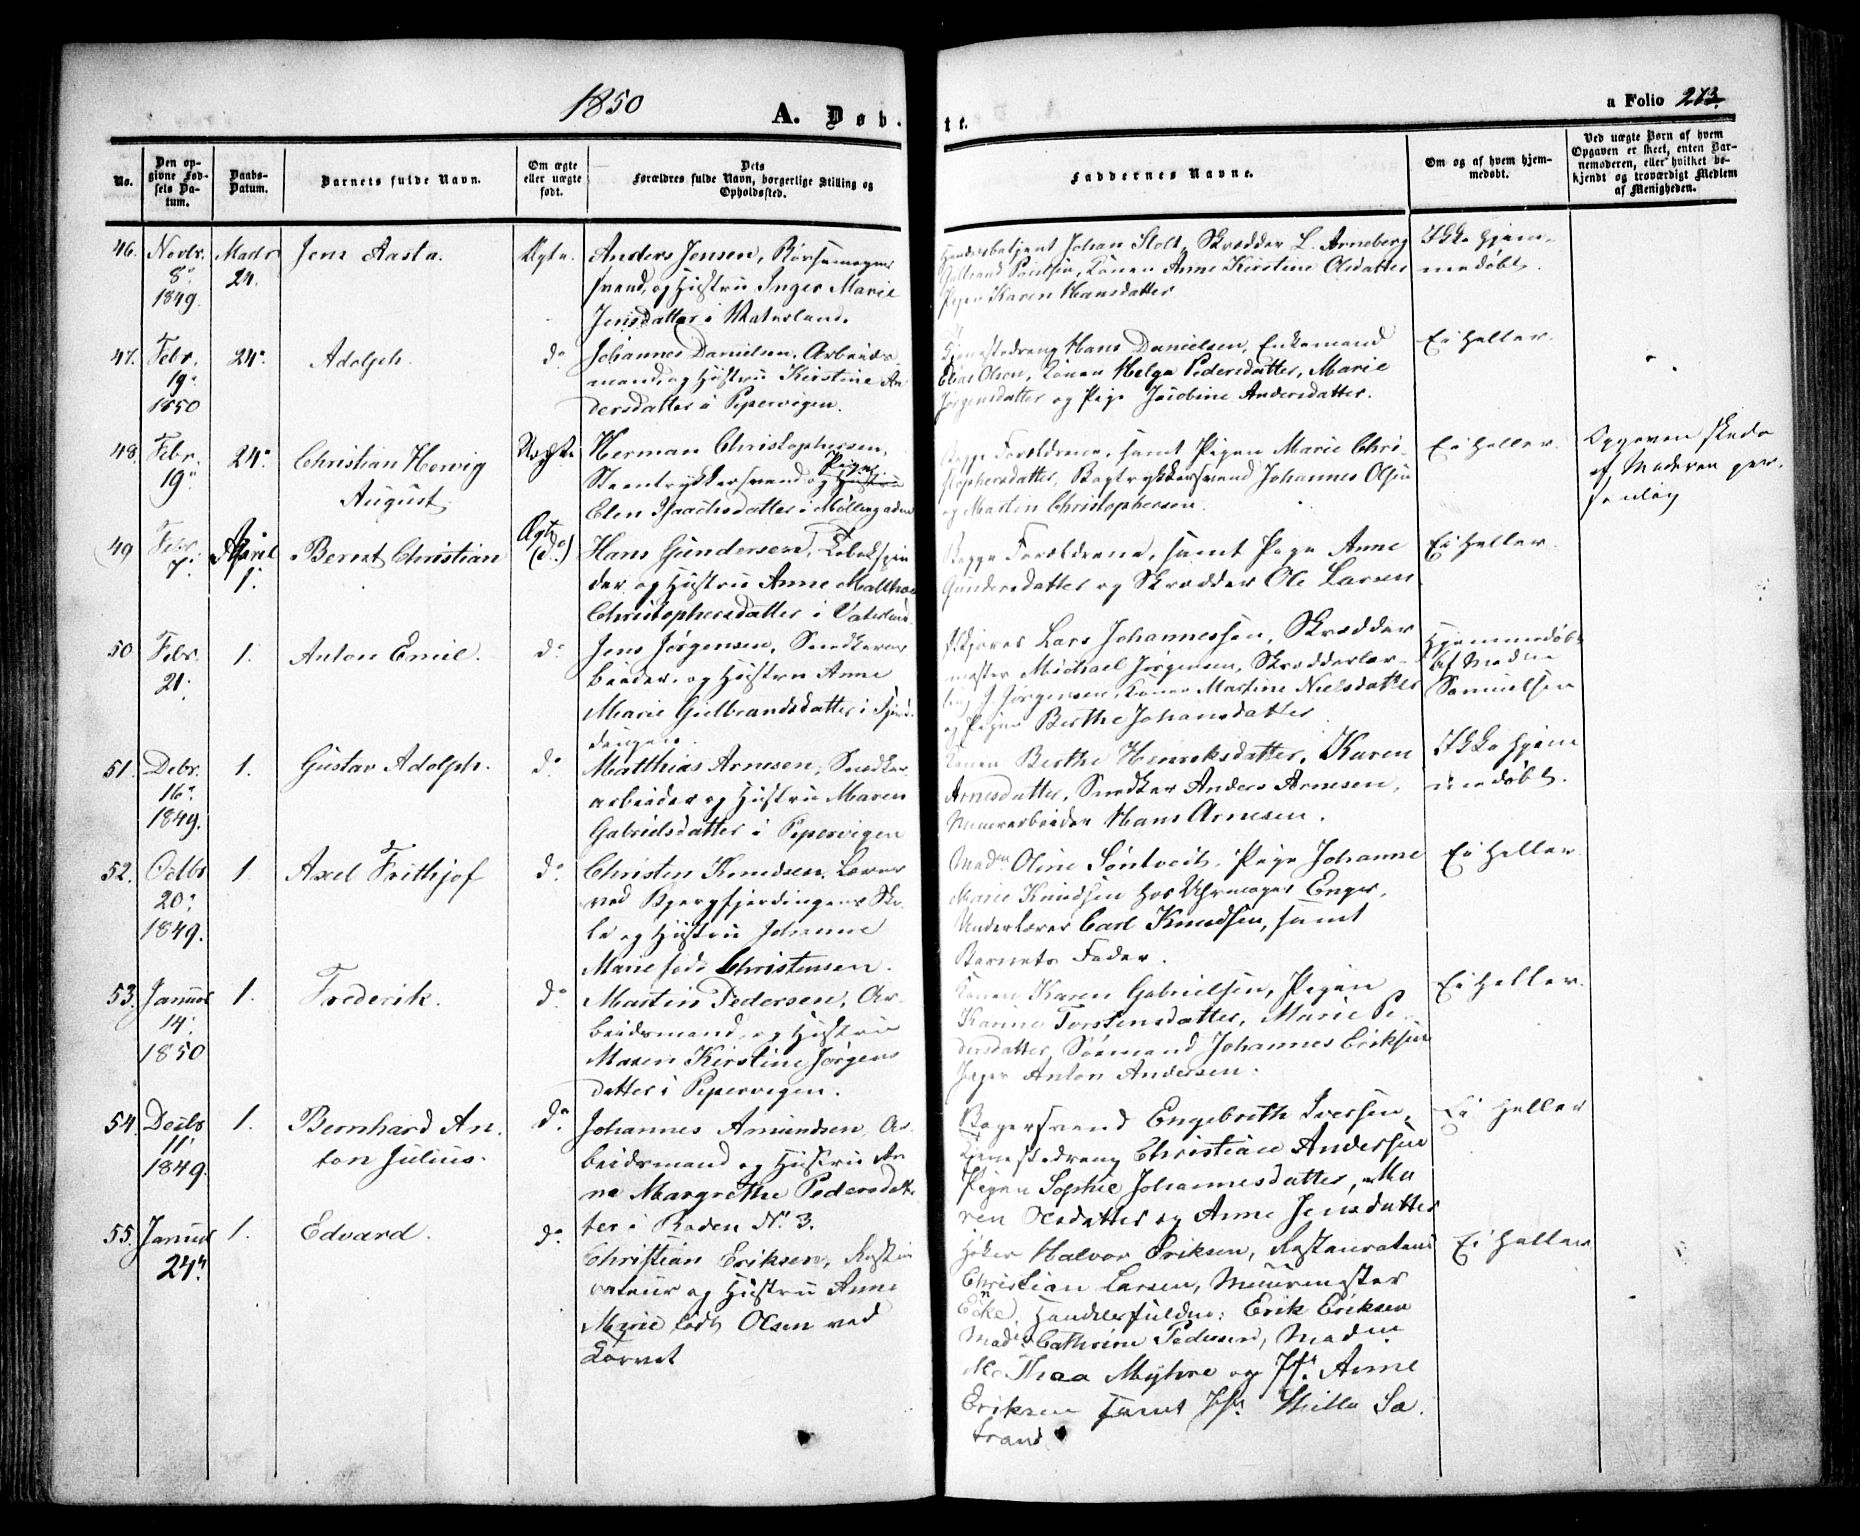 1850
A. Døb-
te.
a Folio 213.
No.
Den opgivne Fødsels Datum.
Daabs-Datum.
Barnets fulde Navn.
Om ægte eller uægte født.
Dets Forældres fulde Navn, borgerlige Stilling og Opholdssted.
Faddernes Navne.
Om og af hvem hjemmedøbt.
Ved uægte Børn af hvem Opgaven er skeet, enten Barnemoderen, eller hvilket bekjendt og troværdigt Medlem af Menigheden.
46. Novbr. 8de 1849. Marts 24. Jens Aasta. Ægte.
Anders Jensen,
svend, og Hustru Inger Marie
Jensdatter i Vaterland.
Johan Stolt, Skrædder L. Arneberg
Poulsen, Konen Anne Kirstine Olsdatter
Pigen Karen Hansdatter
Ikke hjem-
medøbt.
47. Febr. 19de 1850 24de Adolph. do
Johannes Danielsen, Arbeids-
mand, og Hustru Kirstine An
dersdatter i Pepervigen.
Tjenestedreng Hans Danielsen, Enkemand
Elias Olsen, Konen Helga Pedersdatter, Marie
Jørgensdatter og Pige Jacobine Andersdatter.
Ei heller.
48. Febr. 19de 24de Christian Hervig
August. Uægte
Herman Christophersen,
Steentrykkersvend og Hustru Pigen
Elen Isaachsdatter i Møllergaden
Begge Forældrene, samt Pigen Marie Chri-
stophersdatter, Bogtrykkersvend Johannes Olsen
og Martin Christophersen.
Ei heller.
Opgaven skede
af Moderen per-
sonlig
(49 Febr. 7. April 1. Bernt Christian Ægte (do)
Hans Gundersen, Tobakspin
der og Hustru Anne Malthea
Christophersdatter i Vaterland.
Begge Forældrene, samt Pige Anne
Gundersdatter og Skrædder Ole Larsen
Ei heller.
50 Febr. 21. 1. Anton Emil. do
Jens Jørgensen, Snedkerar
beider, og Hustru Anne
Marie Gulbrandsdatter i Fjerd
dingen.
Lars Johannessen, Skrædder
mester Michael Jørgensen, Skrædderlær-
ling J Jørgensen, Konen Martine Nielsdatter
og Pigen Berthe Johansdatter
Hjemmedøbt
af Madme
Samuelsen
51. Debr. 16de 1849. 1. Gustav Adolph. do
Matthias Arnesen, Snedker
arbeider og Hustru Maren
Gabrielsdatter i Pepervigen
Konen Berthe Henriksdatter, Karen
Arnesdatter, Snedker Anders Arnesen,
Muurarbeider Hans Arnesen.
Ikke hjem
medøbt.
52. Octbr 20de 1849. 1. Axel Frithjof do
Christen Knudsen, Lærer
ved Bjergfjerdingens Sko-
le og Hustru Johanne
Marie født Christensen.
Madme Oline Søntveit, Pige Johanne
Marie Knudsen hos Uhrmager Enger,
Underlærer Carl Knudsen, samt
Barnets Fader.
Ei heller
53. Januar 14de 1850 1. Frederik. do
Martin Pedersen, Ar-
beidsmand, og Hustru
Maren Kirstine Jørgens
datter i Pepervigen.
Konen Karen Gabrielsen, Pigen
Karine Torstensdatter, Marie Pe-
dersdatter, Sømand Johannes Eriksen
Jæger Anton Andersen.
Ei heller.
54. Decbr 11te 1849. 1. Bernhard An-
ton Julius. do
Johannes Amundsen, Ar-
beidsmand og Hustru An-
ne Margrethe Pedersdat-
ter i Roden No 3.
Bagersvend Engebreth Iversen,
Tjenestedreng Christian Andersen
Pigen Sophie Johannesdatter, Ma
ren Olsdatter og Anne Jensdatter
Ei heller
55. Januar 24de 1. Edvard. do
Christian Eriksen, Restau
rateur og Hustru Anne
Marie født Olsen ved
Torvet
Høker Halvor Eriksen, Restaurateur
Christian Larsen, Muurmester
Handelsfuldm: Erik Eriksen
Madme Cathrine Pedersen, Madme
Mathea Myhre og Jf. Anne
Eriksen samt Jfr. Sa-
trand.
Ei heller